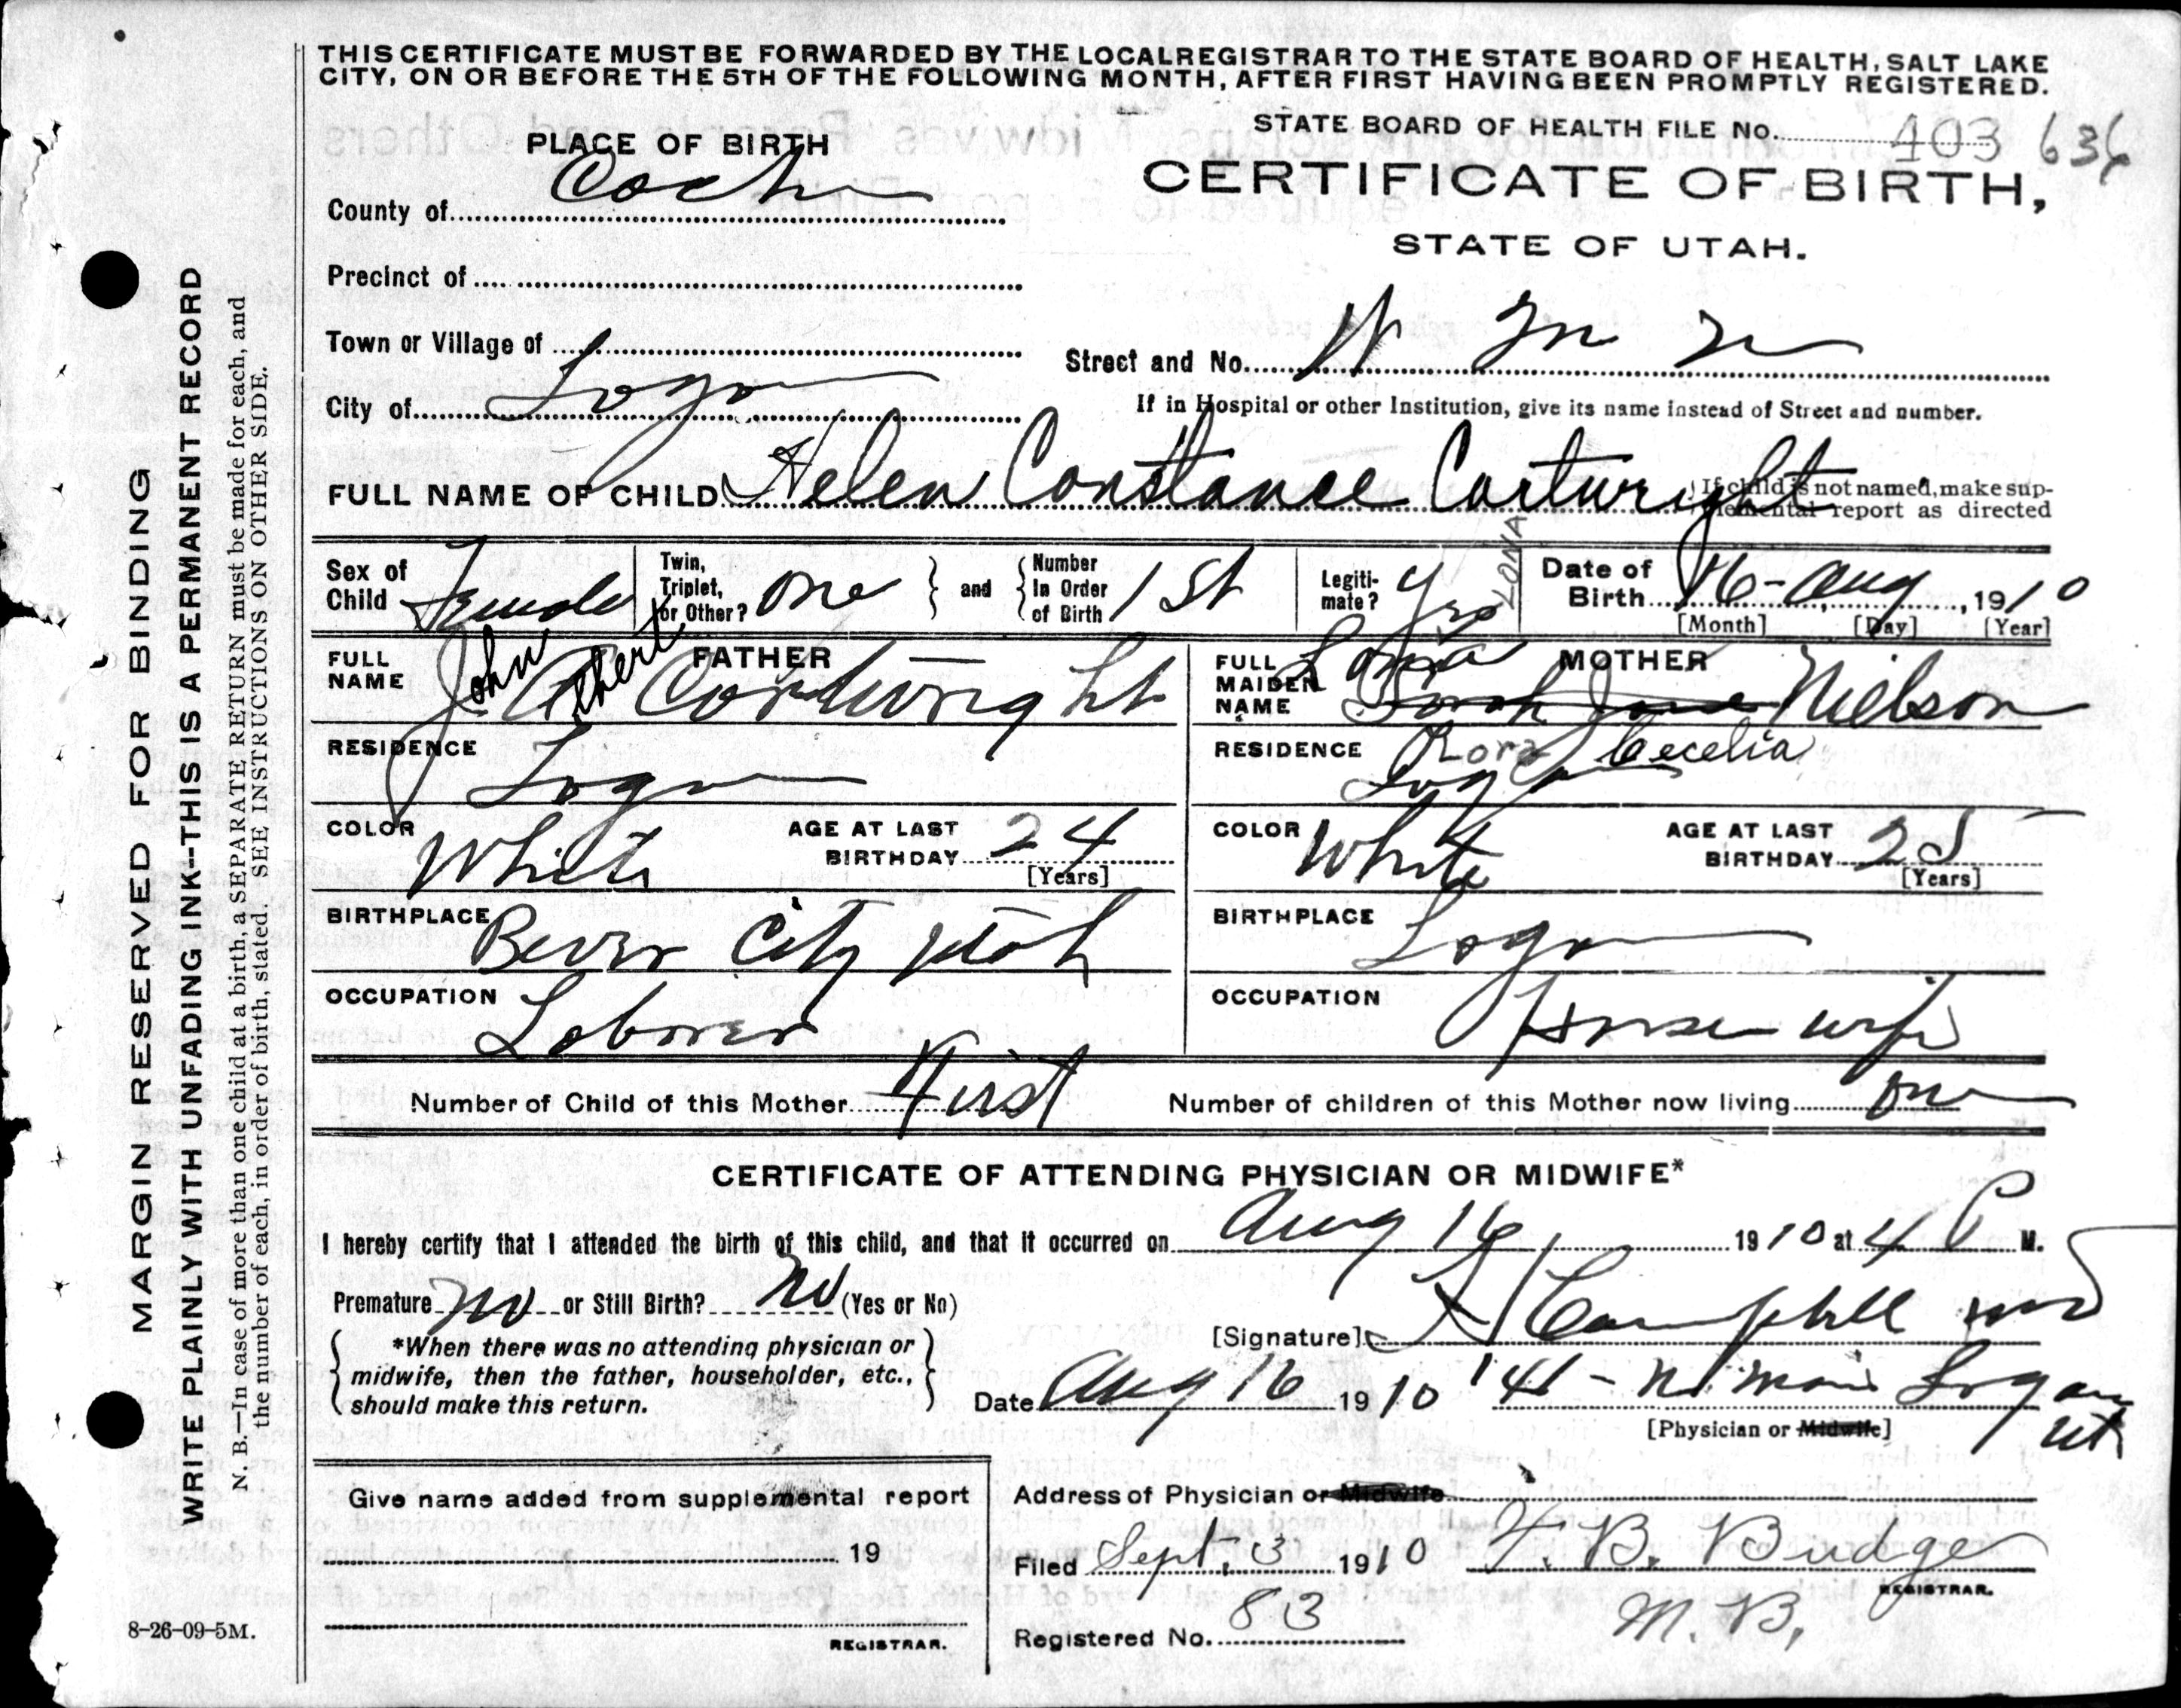 THIS CERTIFICATE MUST BE FORWARDED BY THE LOCAL REGISTRAR TO THE STATE BOARD OF HEALTH, SALT LAKE
CITY, ON OR BEFORE THE 5TH OF THE FOLLOWING MONTH, AFTER FIRST HAVING BEEN PROMPTLY REGISTERED.
STATE BOARD OF HEALTH FILE NO. 403 636
PLACE OF BIRTH
CERTIFICATE OF BIRTH,
STATE OF UTAH.
County of
Precinct of
Town or Village of
Street and No.
City of Logan
If in Hospital or other Institution, give its name instead of Street and number.
FULL NAME OF CHILD Helen Constance Cartwright
If child is not named, make sup-
plemental report as directed
Sex of Child Female
Twin, Triplet, or Other? One and Number In Order of Birth 1st
Legiti-mate? Yes
Date of Birth 16-Aug, 1910
[Month] [Day] [Year]
LONA
FATHER
FULL NAME John Albert Cartwright
MOTHER
FULL MAIDEN NAME Lona Sarah Jane Nielson
Cecelia
RESIDENCE Logan
RESIDENCE Logan
COLOR White AGE AT LAST BIRTHDAY 24 [Years]
COLOR White AGE AT LAST BIRTHDAY [Years]
BIRTHPLACE Bever City Utah
BIRTHPLACE Logan
OCCUPATION Laborer
OCCUPATION House wife
Number of Child of this Mother First
Number of children of this Mother now living one
CERTIFICATE OF ATTENDING PHYSICIAN OR MIDWIFE*
I hereby certify that I attended the birth of this child, and that it occurred on Aug 16, 1910 at 4 P M.
Premature No or Still Birth? No (Yes or No)
[Signature] Campbell MD
*When there was no attending physician or
midwife, then the father, householder, etc.,
should make this return.
Date Aug 16 1910 141 - N. Main Logan Ut
[Physician or Midwife]
Give name added from supplemental report
19
REGISTRAR.
Address of Physician or Midwife
Filed Sept. 3 1910 T. B. Budge
REGISTRAR.
M. B.
Registered No. 83
8-26-09-5M.
MARGIN RESERVED FOR BINDING
WRITE PLAINLY WITH UNFADING INK--THIS IS A PERMANENT RECORD
N. B.—In case of more than one child at a birth, a SEPARATE RETURN must be made for each, and
the number of each, in order of birth, stated. SEE INSTRUCTIONS ON OTHER SIDE.